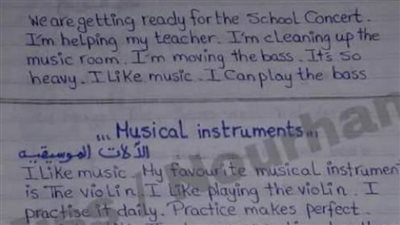 We are getting ready for the School Concert.
I'm helping my teacher. I'm cleaning up the
music room. I'm moving the bass. It's so
heavy. I Like music. I Can play the bass
... Musical instruments...
الآلات الموسيقيه
I Like music. My favourite musical instrumen
is The violin. I Like playing the violin. I
practise it daily. Practice makes perfect.
Nourhan